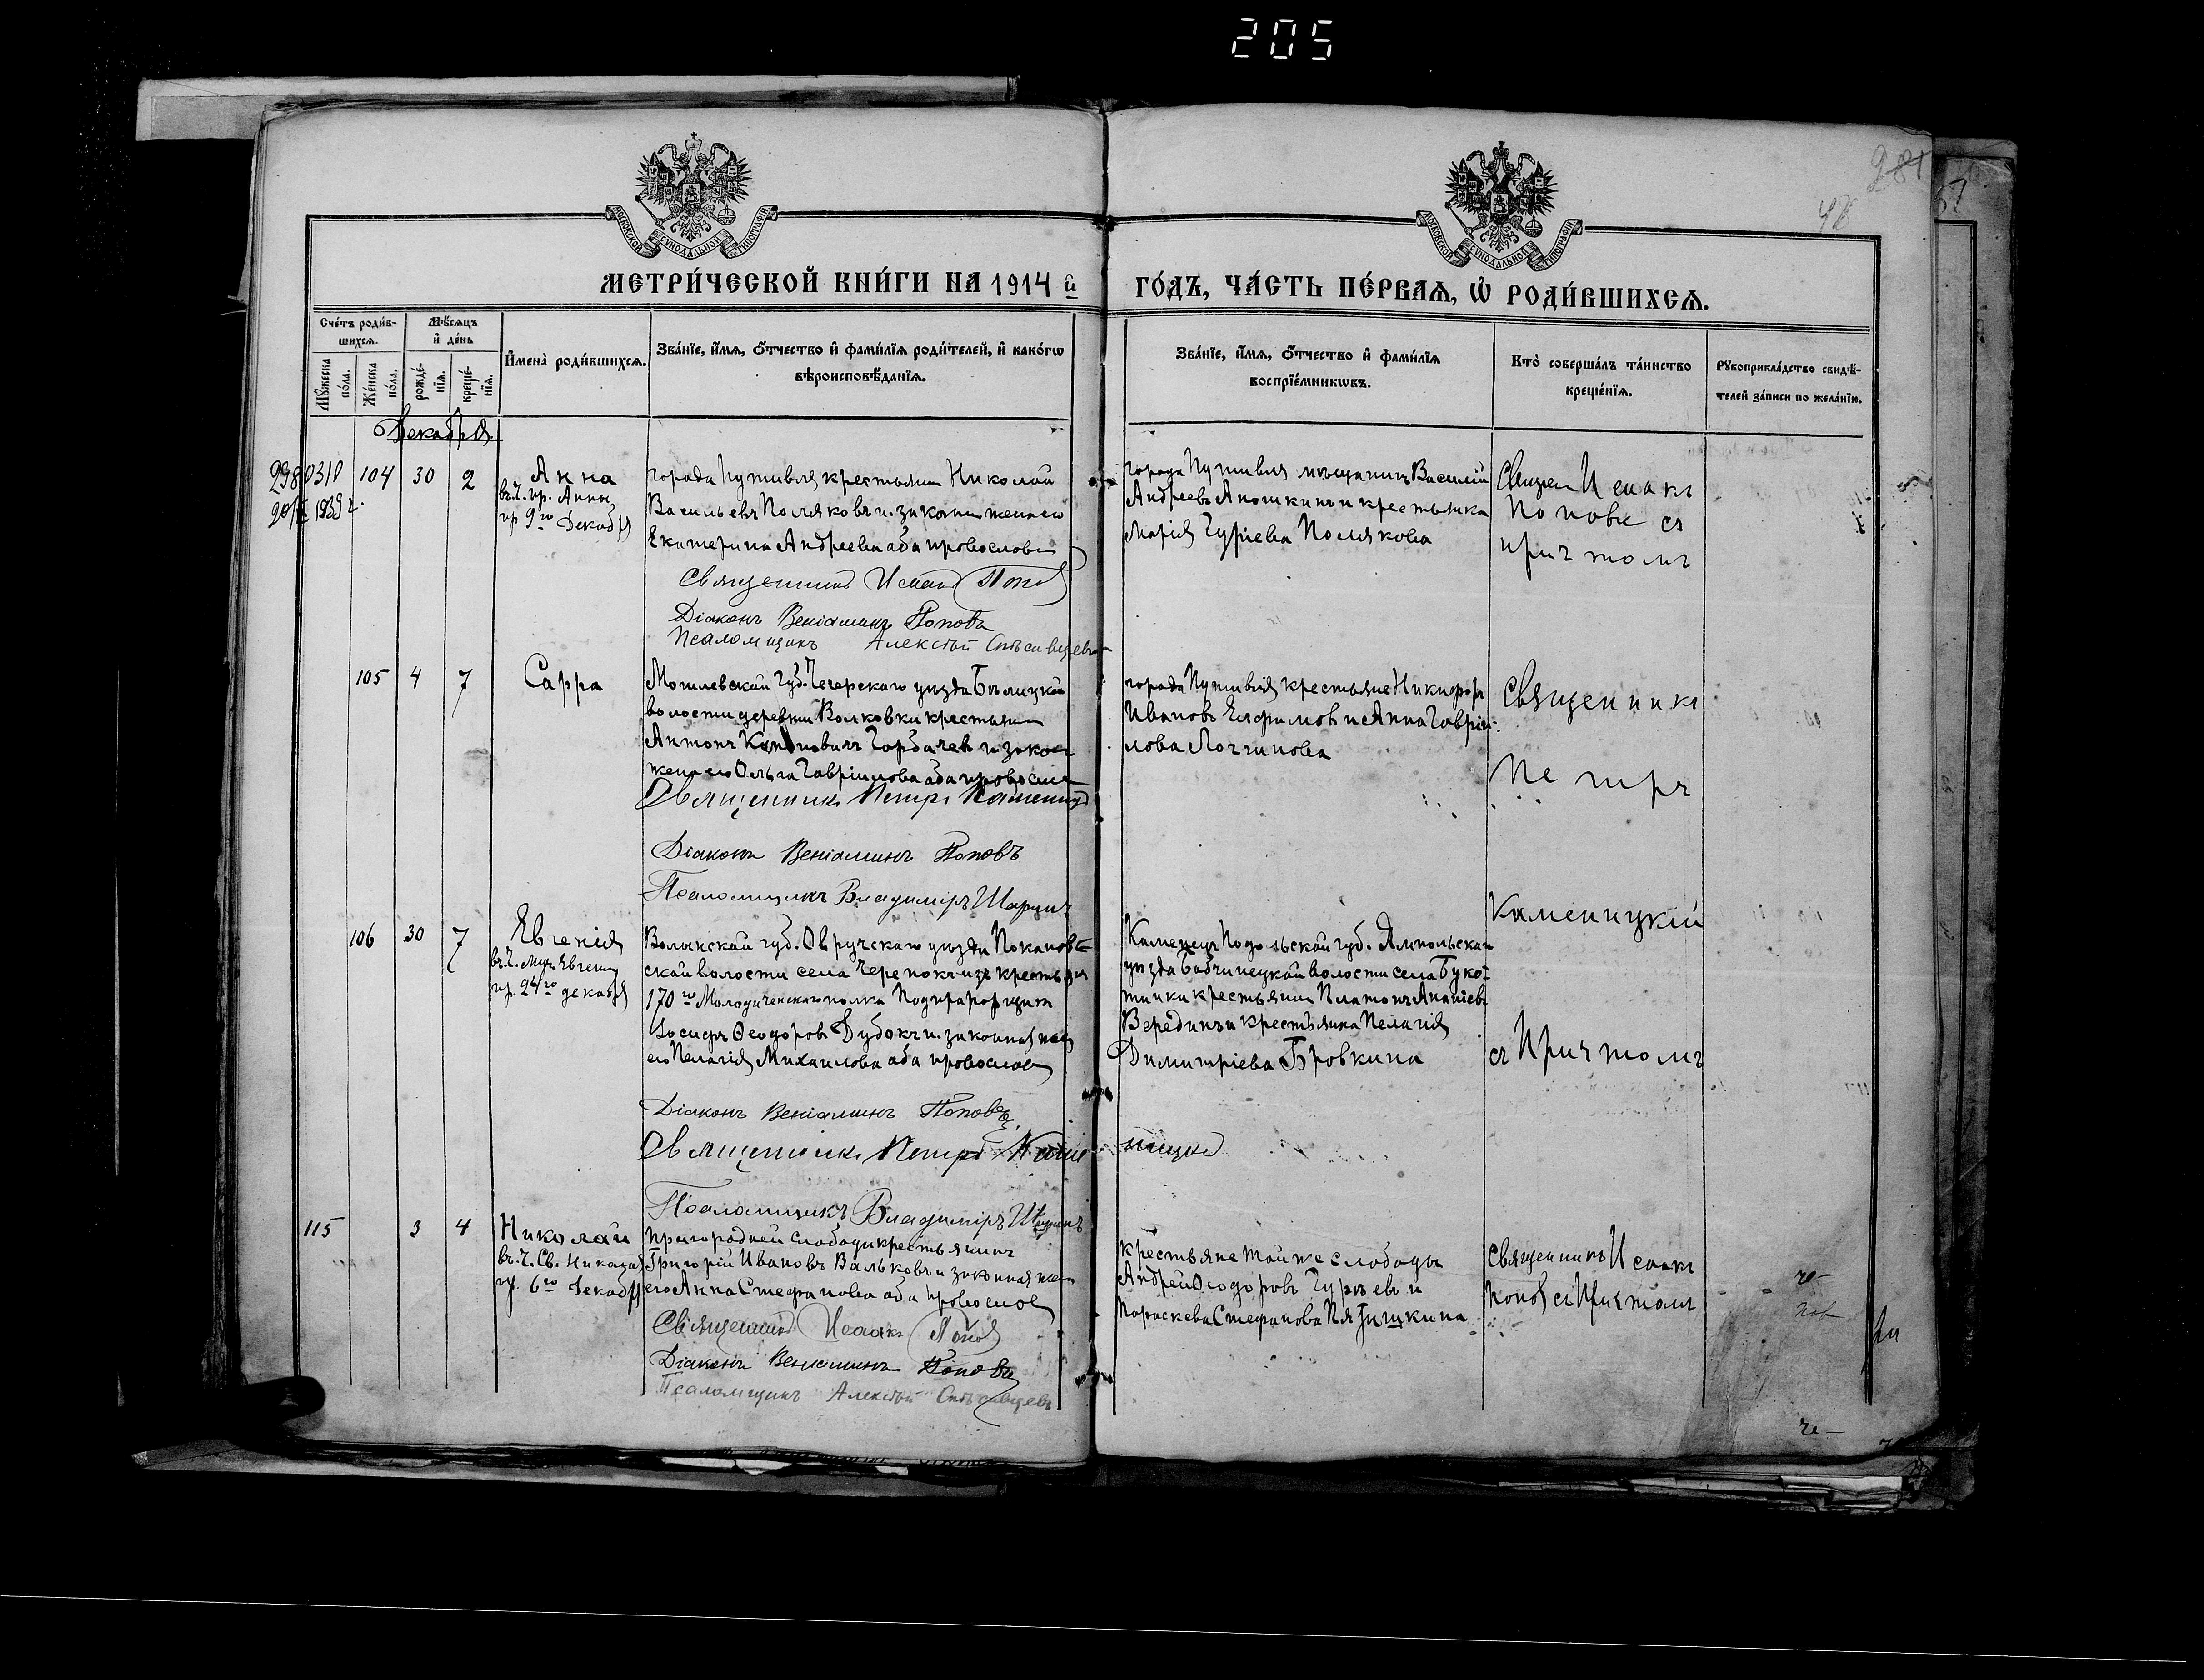 205
281
42
57
МОСКОВСКОЙ СѴНОДАЛЬНОЙ ТИПОГРАФІИ
МОСКОВСКОЙ СѴНОДАЛЬНОЙ ТИПОГРАФІИ
МЕТРИ́ЧЕСКОЙ КНИ́ГИ НА 1914 й ГО́ДЪ, ЧА́СТЬ ПЕ́РВАѦ, Ѽ РОДИ́ВШИХСѦ.
Сче́тъ роди́в-
шихсѧ.
Мꙋжеска по́ла.
Же́нска по́ла.
Мѣ́сѧцъ и҆ де́нь
рожде́-нїѧ.
креще́-нїѧ.
И҆мена̀ роди́вшихсѧ.
Зва́нїе, и҆́мѧ, ѻ҆́тчество и҆ фами́лїѧ роди́телей, и҆ како́гѡ
вѣроисповѣ́данїѧ.
Зва́нїе, и҆́мѧ, ѻ҆́тчество и҆ фами́лїѧ
воспрїе́мникѡвъ.
Кто̀ соверша́лъ та́инство
креще́нїѧ.
Рꙋкоприкла́дство свидѣ́-
телей за́писи по жела́нїю.
Декабря
104 30 2
Анна
въ ч. пр. Анны
пр. 9го Декабря
города Путивля крестьянин Николай
Васильевъ Поляковъ и законн жена его
Екатерина Андреева оба православн
Священникъ Исаакъ Попов
Діаконъ Веніаминъ Поповъ
Псаломщикъ Алексѣй
города Путивля мѣщанинъ Василій
Андреевъ Аношкинъ и крестьянка
Марія Гуріева Полякова
Священ Исаакъ
Поповъ съ
причтомъ
105 4 7
Сарра
Могилевской губ. Чечерскаго уѣзда Бѣлицкой
волости деревни Волковки крестьянин
Антонъ Горбачев и закон
жена его Ольга Гавріилова оба православ
Священникъ Петръ Каменицкі
Діаконъ Веніаминъ Поповъ
Псаломщикъ Владиміръ
города Путивля крестьяне Никифоръ
Ивановъ Елфимовъ и Анна Гавріи-
лова Логгинова
Священникъ
Петръ
Каменицкій
съ Причтомъ
106 30 7
Евгенія
въ ч. муч. Евгеніи
пр. 24го декабря
Волынской губ. Овручскаго уѣзда
ской волости села изъ крестьян
170го Молодечненского полка Подпрапорщик
Іосифъ Ѳеодоровъ Дубокъ и законная жен
его Пелагія Михаилова оба православ
Діаконъ Веніаминъ Поповъ
Священникъ Петръ Каме ницкі
Псаломщикъ Владиміръ
Каменецъ Подольской губ. Ямпольскаго
уѣзда Бабчинецкой волости села Буко-
тинки крестьянин Платонъ Ананіевъ
Верединъ и крестьянка Пелагія
Димитріева Бровкина
115 3 4
Николай
въ ч. Св. Николая
пр. 6го Декабря
пригородней слободы крестьянинъ
Григорій Ивановъ Вальковъ и законная жен
его Анна Стефанова оба православ
Священникъ Исаакъ Попов
Діаконъ Веніаминъ Поповъ
Псаломщикъ Алексѣй
крестьяне той же слободы
Андрей Ѳеодоровъ Гурьевъ и
Параскева Стефанова Пятышкина
Священникъ Исаакъ
Попов съ Причтомъ